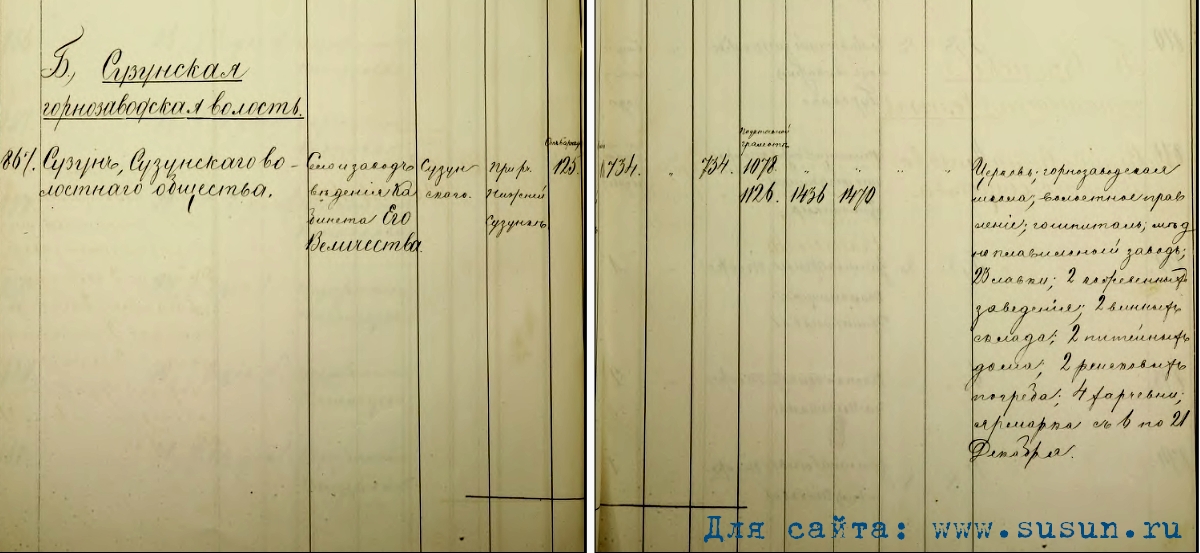 Б., Сузунская
горнозаводская волость.
867. Сузунъ, Сузунскаго во-
лостнаго общества.
Село и заводъ
вѣденія Ка-
бинета Его
Величества
Сузун-
скаго.
При рч.
Нижній
Сузунъ
125.
734. " 734. 1078. " " " "
грамотѣ
1126. 1436 1470
Церковь; горнозаводская
школа; волостное прав
леніе; госпиталь; мѣд
ноплавильной заводъ;
23 лавки; 2
заведенія; 2 винныхъ
склада; 2 питейныхъ
дома; 2 ренсковыхъ
погреба; 4 харчевни;
ярмарка съ 6 по 21
Декабря.
Для сайта: www.susun.ru